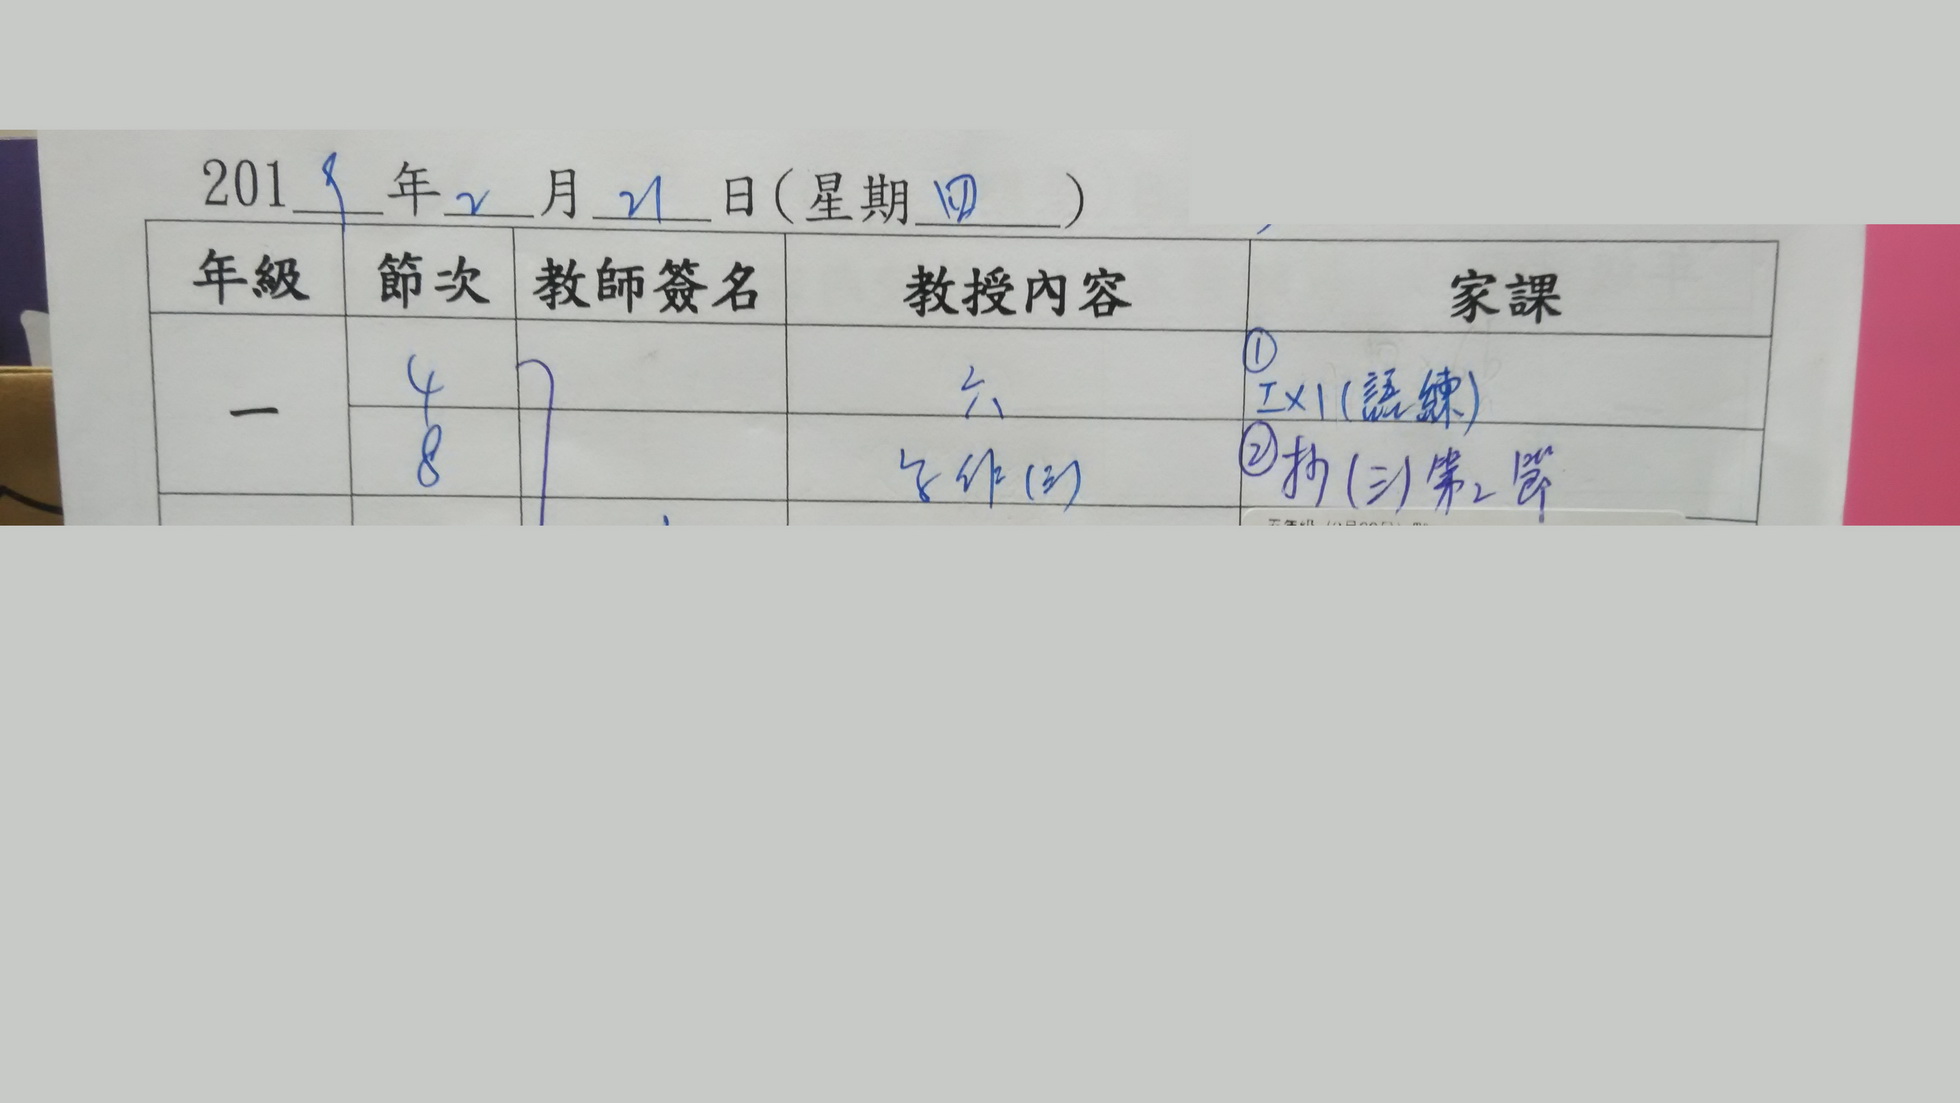 2019年2月21日(星期四)
年級 節次 教師簽名 教授內容 家課
一 4 六 ① 工x1(語練)
8 作(三) ② 抄(三)第2節